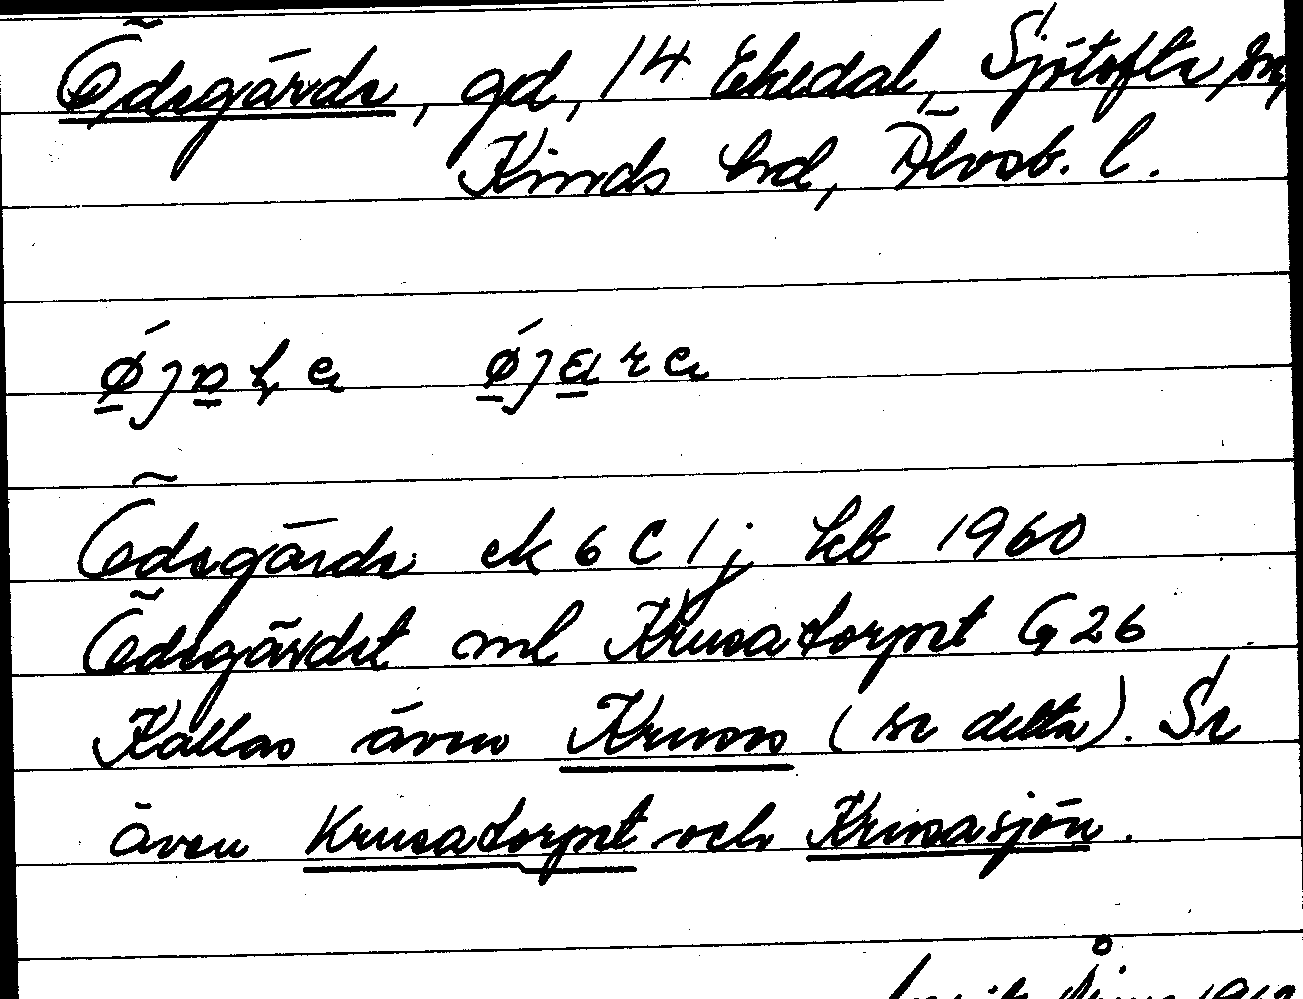 Ödegärde, gd, 14 Ekedal, Sjötofta sn,
Kinds hd, Älvsb. l.
Ödegärde ek 6 C 1 j kb 1960
Ödegärdet ml Krusatorpet G 26
Kallas även Krusos (se detta). Se
även Krusatorpet och Krusasjön.